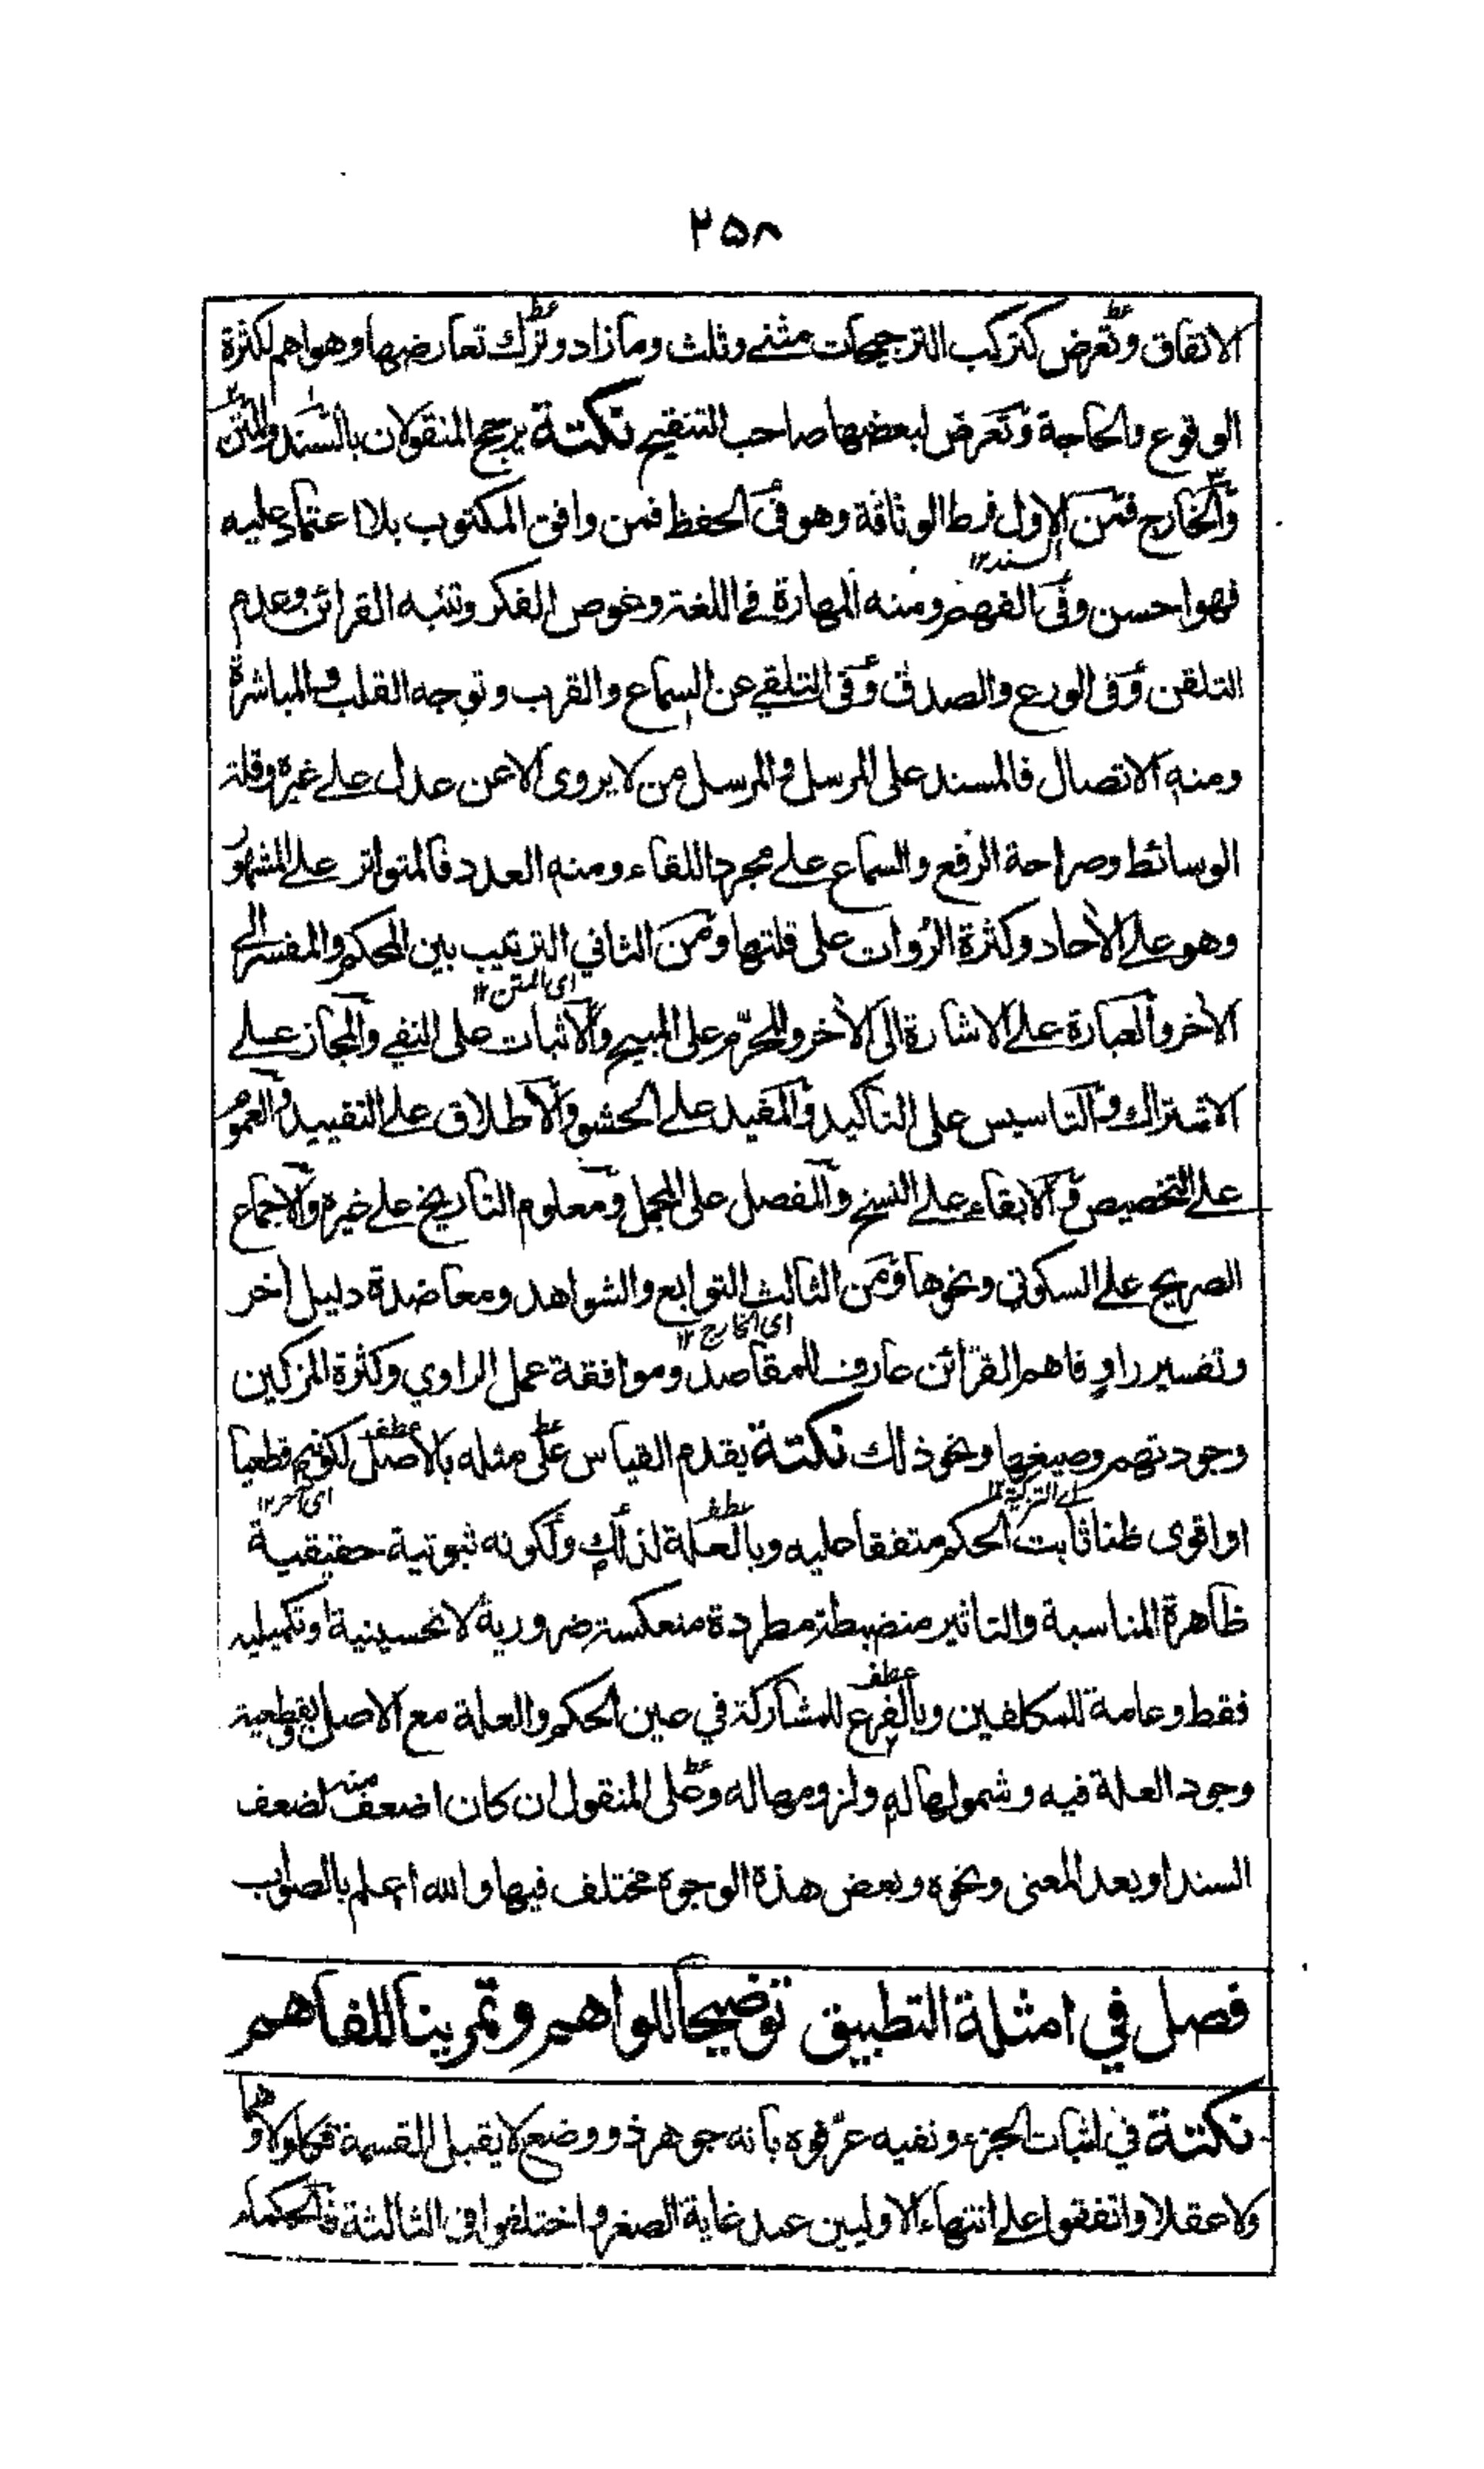 ٢٥٨
الاتفاق وتعرض كتركب الترجيحات مثنى وثلث وما زاد وترك تعارضها وهو اهم لكثرة
الوقوع والحاجة وتعرض لبعضها صاحب التنقيح نكتة يرجح المنقولان بالسند والمتن
والخارج فمن الاول فرط الوثاقة وهو في الحفظ فمن وافق المكتوب بلا اعتماد عليه
السند١٢
فهو احسن وفي الفهم ومنه المهارة في اللغة وغوص الفكر وتنبه القرائن وعدم
التلقن وفي الورع والصدق وفي التلقي عن السماع والقرب وتوجه القلب والمباشرة
ومنه الاتصال فالمسند على المرسل والمرسل من لا يروى الا عن عدل على غيره وقلة
الوسائط وصراحة الرفع والسماع على مجرد اللقاء ومنه العدد فالمتواتر على المشهور
وهو على الأحاد وكثرة الرُوات على قلتها ومن الثاني الترتيب بين المحكم والمفسر الى
اى المتن١٢
الأخر والعبارة على الاشارة الى الأخر والمحرّم على المبيح والاثبات على النفي والمجاز على
الاشتراك والتاسيس على التاكيد والمفيد على الحشو والاطلاق على التقييد والعموم
على التخصيص والابقاء على النسخ والمفصل على المجمل ومعلوم التاريخ على غيره والاجماع
الصريح على السكوتي ونحوها ومن الثالث التوابع والشواهد ومعاضدة دليل اخر
اى الخارج١٢
وتفسير راوٍ فاهم القرائن عارف المقاصد وموافقة عمل الراوي وكثرة المزكين
وجودتهم وصيغها ونحو ذلك نكتة يقدم القياس على مثله بالاصل لكونه قطعيا
اى التزكية١٢ عطف اى آخر١٢
او اقوى ظنا ثابت الحكم متفقا عليه وبالعلة لذلك ولكونه ثبوتية حقيقية
ظاهرة المناسبة والتاثير منضبطة مطردة منعكسة ضرورية لا تحسينية او تكميلية
عطف
فقط وعامة للمكلفين وبالفرع للمشاركة في عين الحكم والعلة مع الاصل وقطعية
وجود العلة فيه وشمولها له ولزومها له وعلى المنقول ان كان اضعف منه لضعف
السند او بعد المعنى ونحوه وبعض هذه الوجوه مختلف فيها والله اعلم بالصواب
فصل في امثلة التطبيق توضيحا للواهم وتمرينا للفاهم
نكتة في اثبات الجزء ونفيه عرّفوه بانه جوهر ذو وضع لا يقبل القسمة فكا ولا وهما
ولا عقلا واتفقوا على انتهاء الاوليين عند غاية الصغر واختلفوا في الثالثة فالحكماء